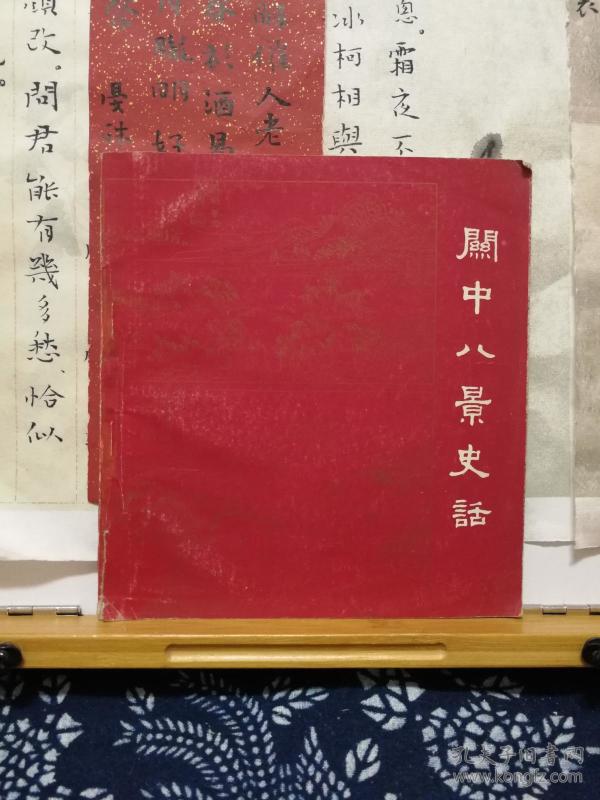 關中八景史話
恩。霜夜不
冰柯相與
催人老
於酒
朧明好
顏改。問君
能有幾多愁、恰似
孔夫子旧书网
www.kongfz.com